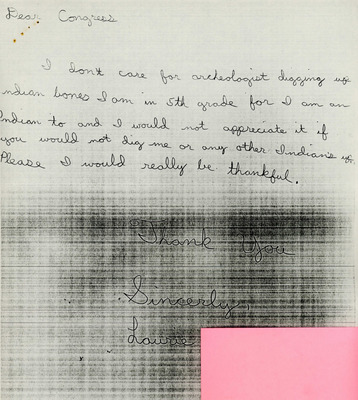 Dear Congress
I don't care for archeologist digging up
indian bones I am in 5th grade for I am an
Indian to and I would not appreciate it if
you would not dig me or any other Indian's up.
Please I would really be thankful.
Thank You
Sincerly,
Laurie